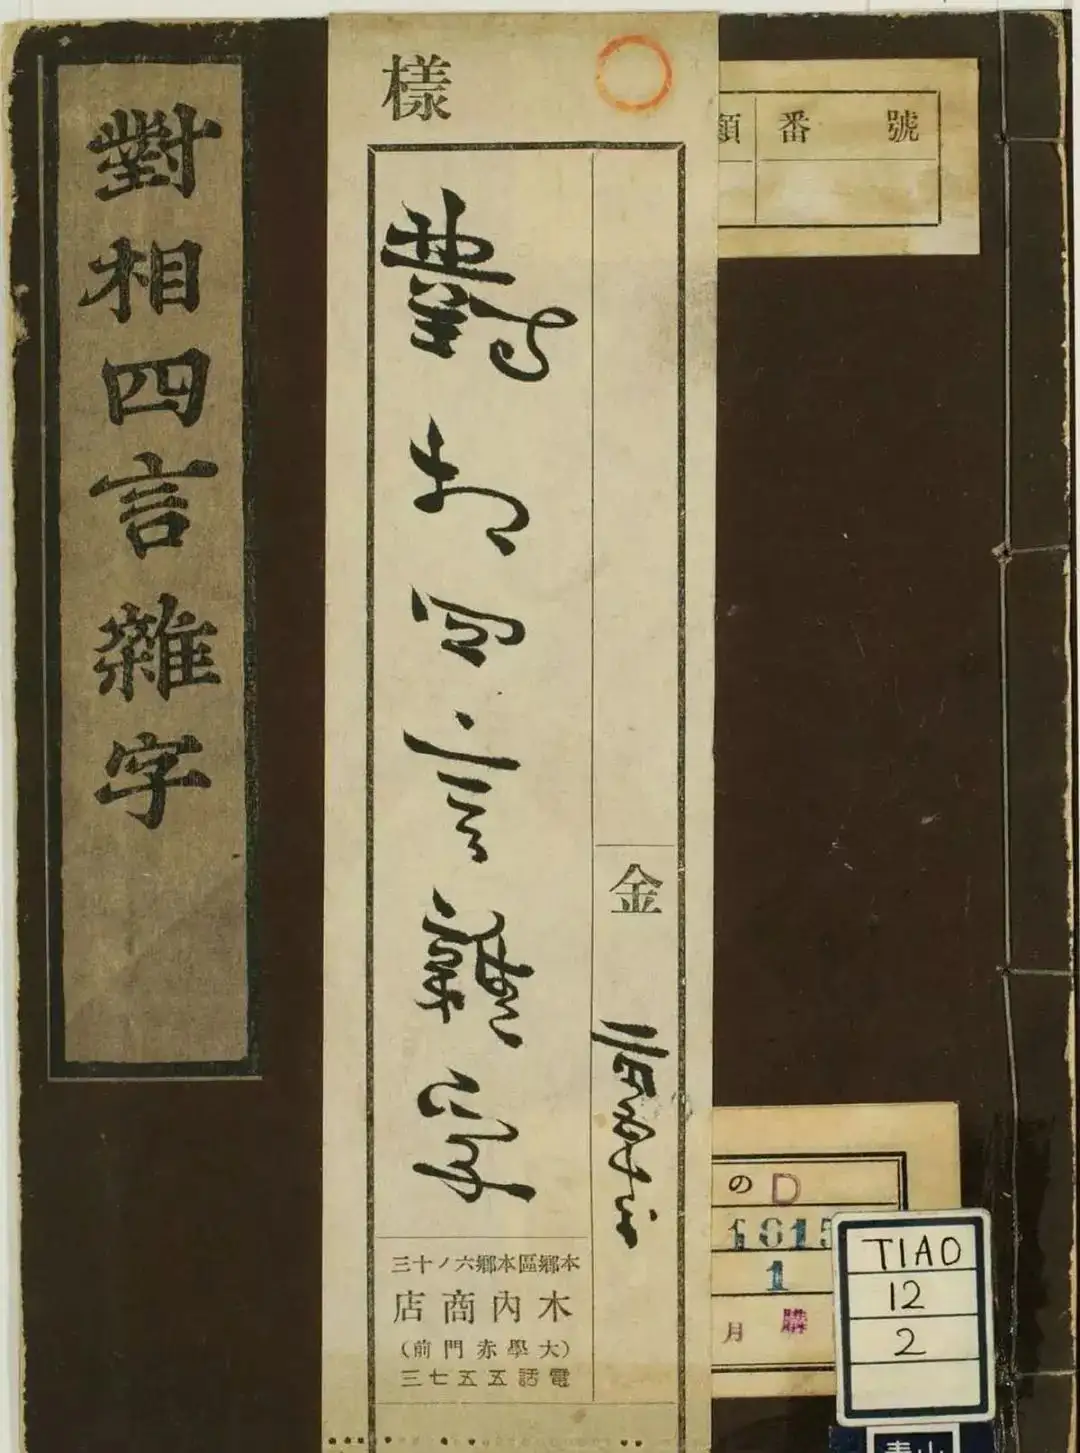 對相四言雜字
樣
對相四言雜字
金
本鄉區本鄉六ノ十三
木內商店
(大學赤門前)
電話五五七三
類番號
の D
1815
1
月 購
TIAO
12
2
青山